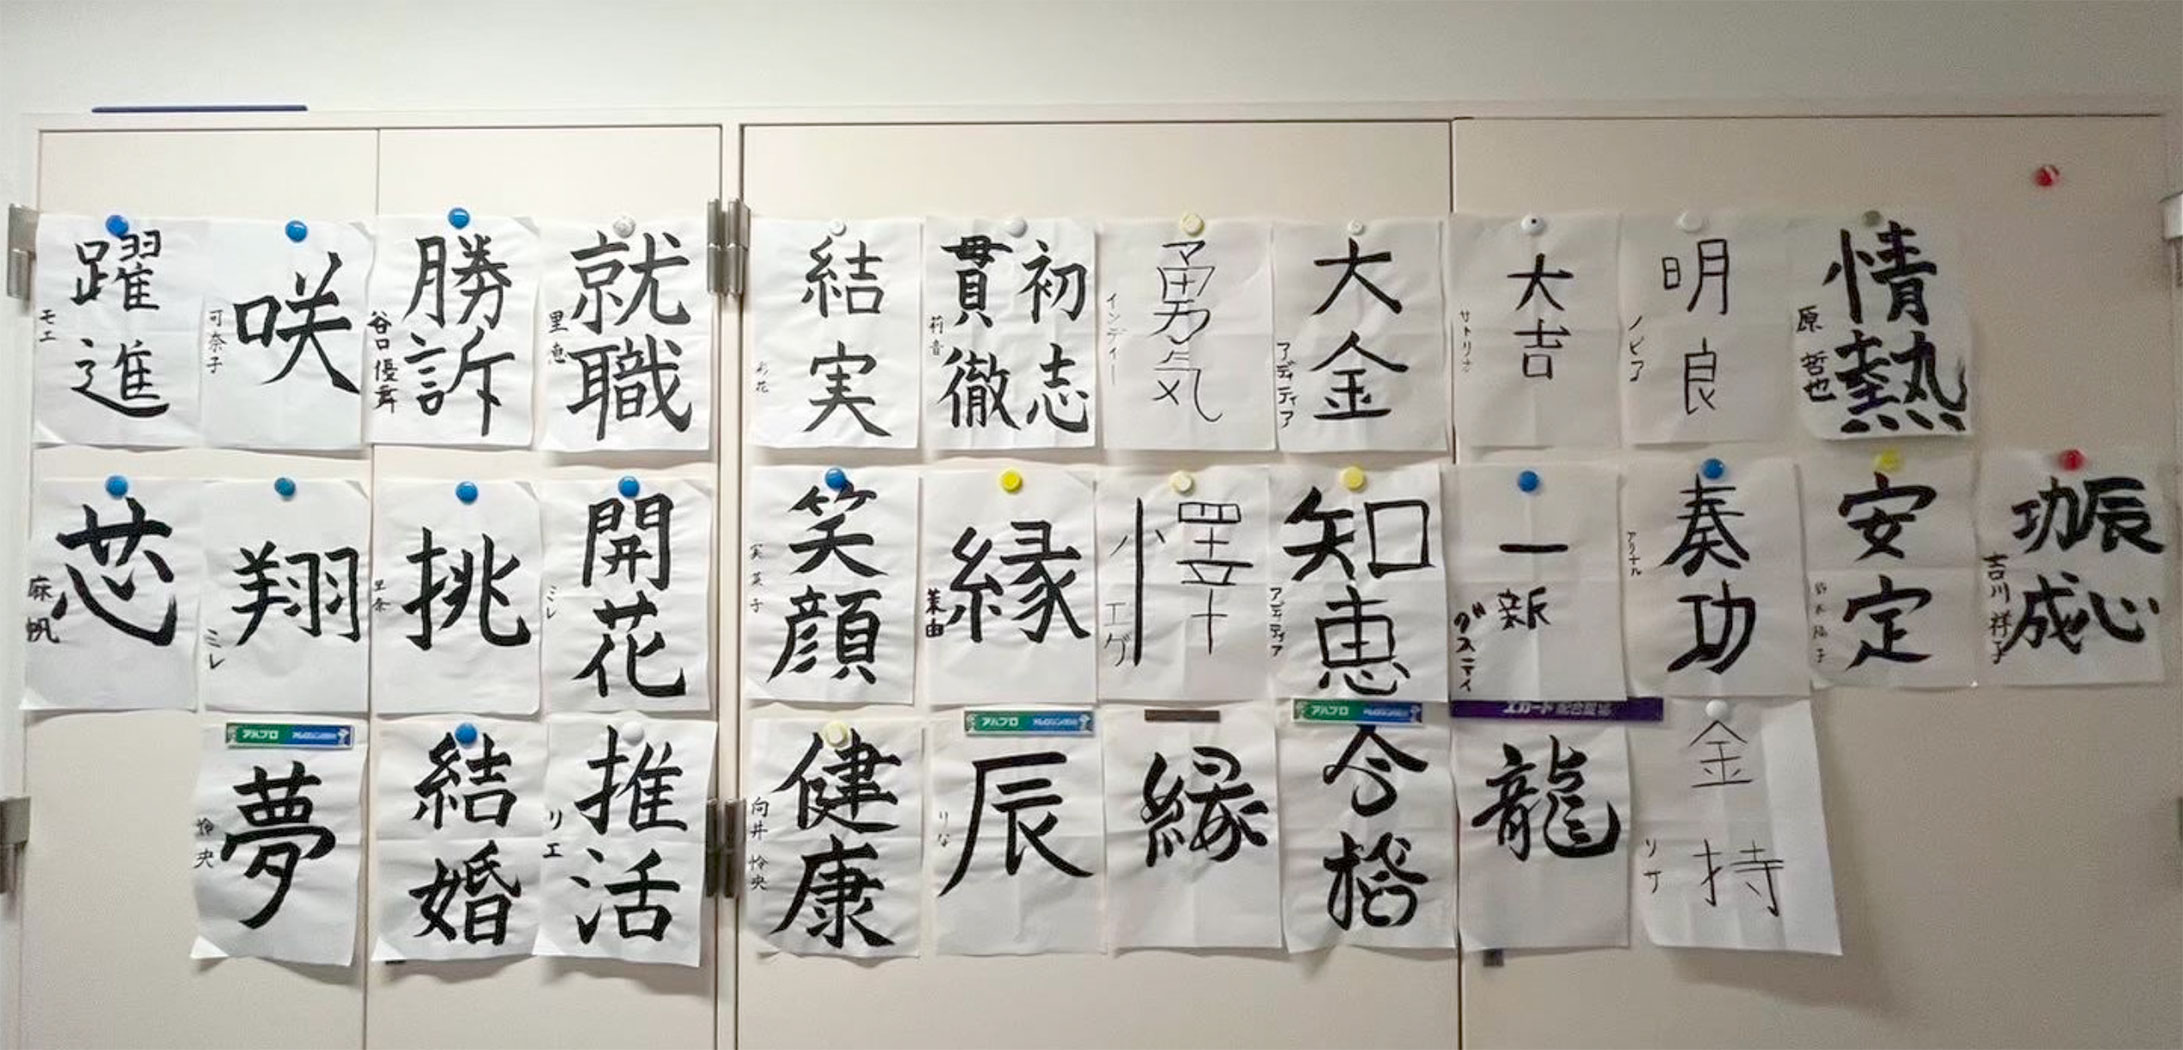 躍進
モエ
咲
可奈子
勝訴
谷口優舞
就職
里恵
結実
彩花
初志
貫徹
莉音
勇気
インディー
大金
アディティア
大吉
サトリナ
明良
ノビア
情熱
原 哲也
芯
麻帆
翔
ミレ
挑
里奈
開花
ミレ
笑顔
実英子
縁
茉由
エゲ
知恵
アディティア
一新
グスティ
奏功
安定
辰心
功成
吉川祥子
アハプロ
夢
怜央
結婚
推活
リエ
健康
向井怜央
アハプロ
辰
りな
縁
アハプロ
エカード 配合錠
龍
金持
リサ